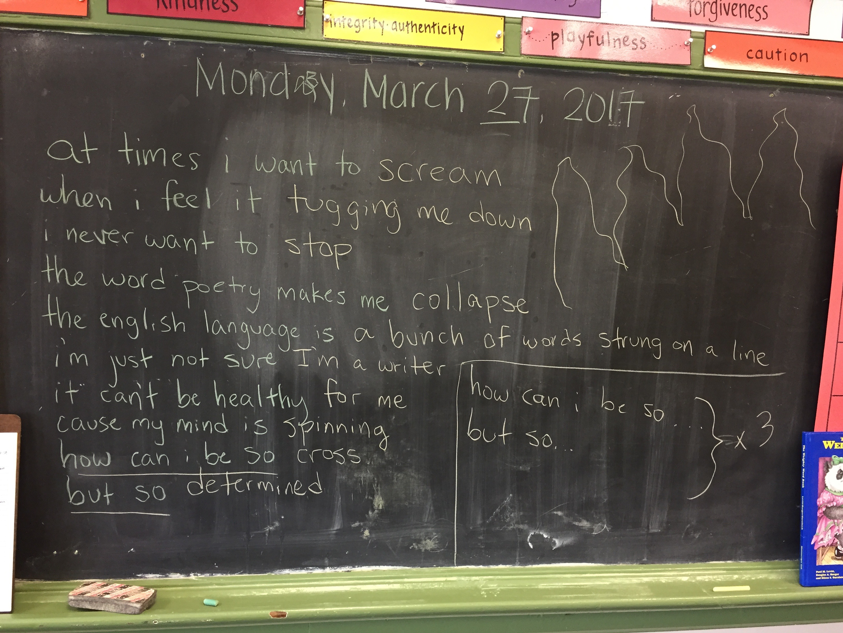 kindness
integrity·authenticity
playfulness
forgiveness
caution
Monday, March 27, 2017
at times i want to scream
when i feel it tugging me down
i never want to stop
the word poetry makes me collapse
the english language is a bunch of words strung on a line
i'm just not sure I'm a writer
it can't be healthy for me
cause my mind is spinning
how can i be so cross
but so determined
how can i be so....
but so...
x 3